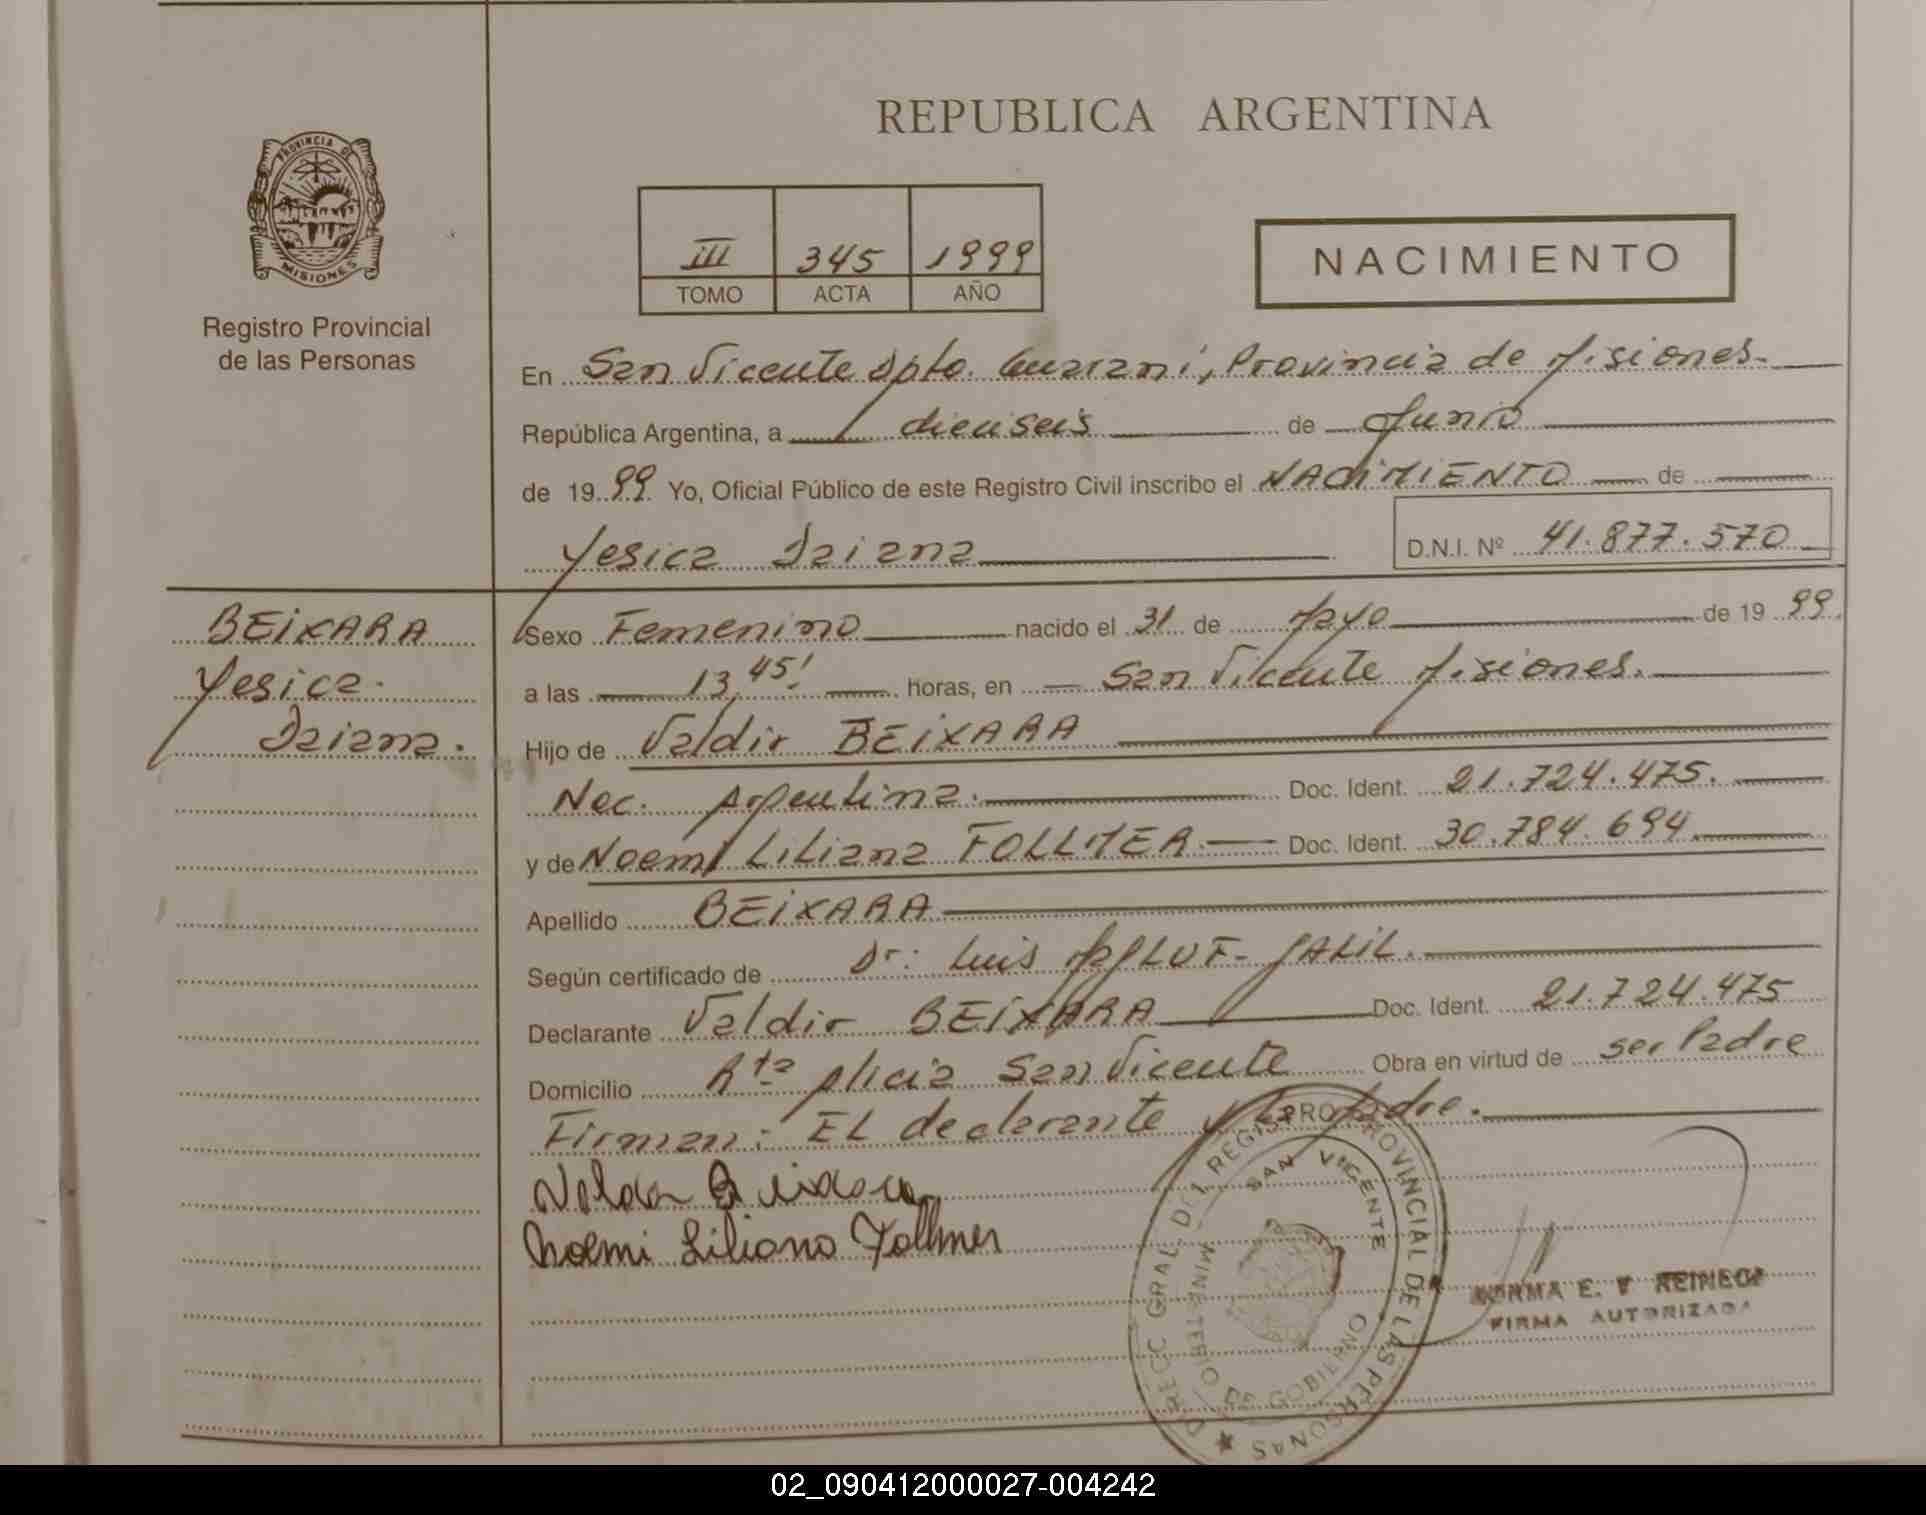 REPUBLICA ARGENTINA
PROVINCIA DE
MISIONES
Registro Provincial
de las Personas
III 345 1999
TOMO ACTA AÑO
NACIMIENTO
En San Vicente Dpto. Guarani, Provincia de Misiones.
República Argentina, a dieciseis de Junio
de 1999 Yo, Oficial Público de este Registro Civil inscribo el NACIMIENTO de
Yesica Daiana D.N.I. Nº 41.877.570
BEIXARA
Yesica
Daiana.
Sexo Femenino nacido el 31 de Mayo de 1999.
a las 13,45' horas, en San Vicente Misiones.
Hijo de Valdir BEIXARA
Nac. Argentina. Doc. Ident. 21.724.475.
y de Noemi Liliana FOLLMER Doc. Ident. 30.784.694
Apellido BEIXARA
Según certificado de Dr: Luis JALIL.
Declarante Valdir BEIXARA Doc. Ident. 21.724.475
Domicilio San Vicente Obra en virtud de ser Padre
Firman: El declarante y La Madre.
Noemi Liliana Follmer
DIRECC GRAL DEL REGISTRO PROVINCIAL DE LAS PERSONAS
SAN VICENTE
MINISTERIO DE GOBIERNO
NORMA E. V REINECK
FIRMA AUTORIZADA
02_090412000027-004242